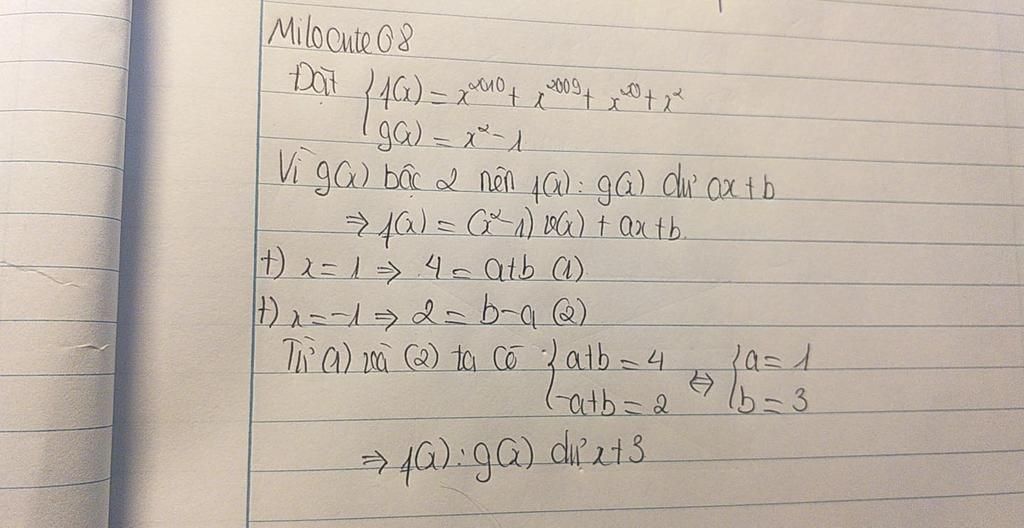 Milocute08
Đặt { f(x) = x^2010 + x^2009 + x^20 + x^2
g(x) = x^2 - 1
Vì g(x) bậc 2 nên f(x) : g(x) dư ax + b
⇒ f(x) = (x^2 - 1) Q(x) + ax + b
+) x = 1 ⇒ 4 = a+b (1)
+) x = -1 ⇒ 2 = b-a (2)
Từ (1) và (2) ta có { a+b = 4 ⇔ { a = 1
-a+b = 2 b = 3
⇒ f(x) : g(x) dư x+3